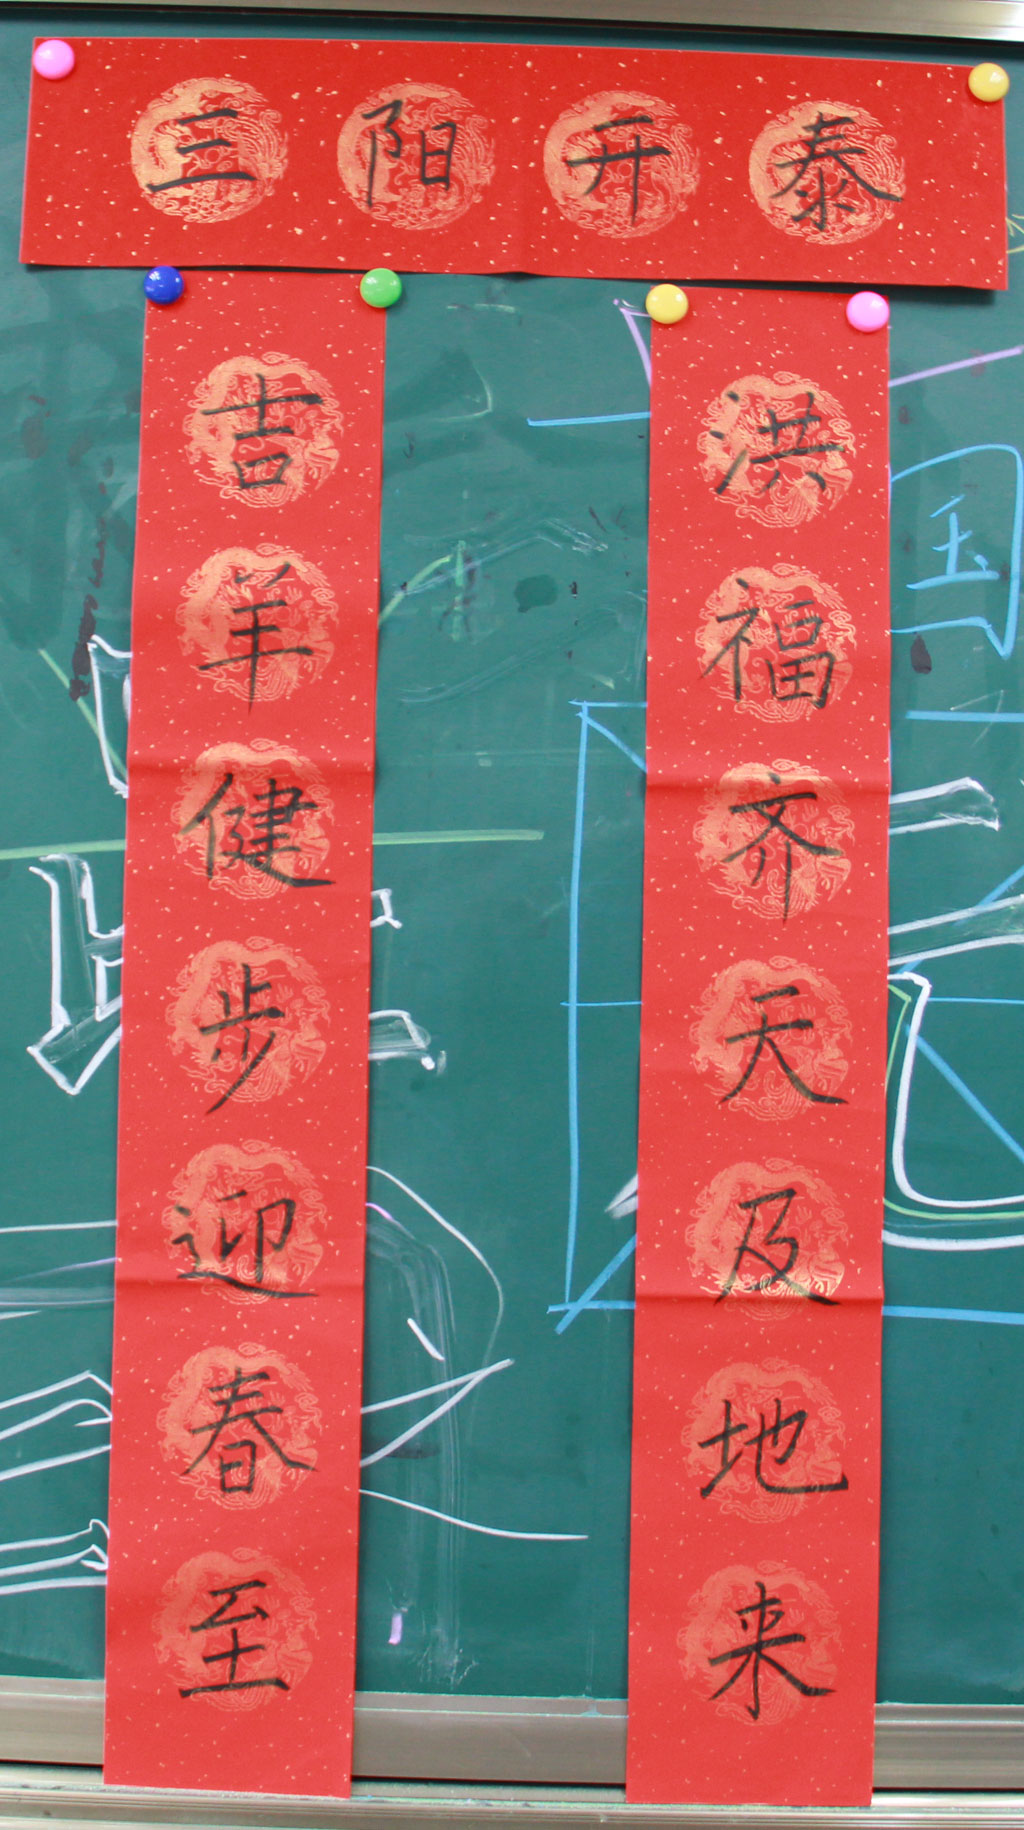 三阳开泰
吉羊健步迎春至
洪福齐天及地来
国